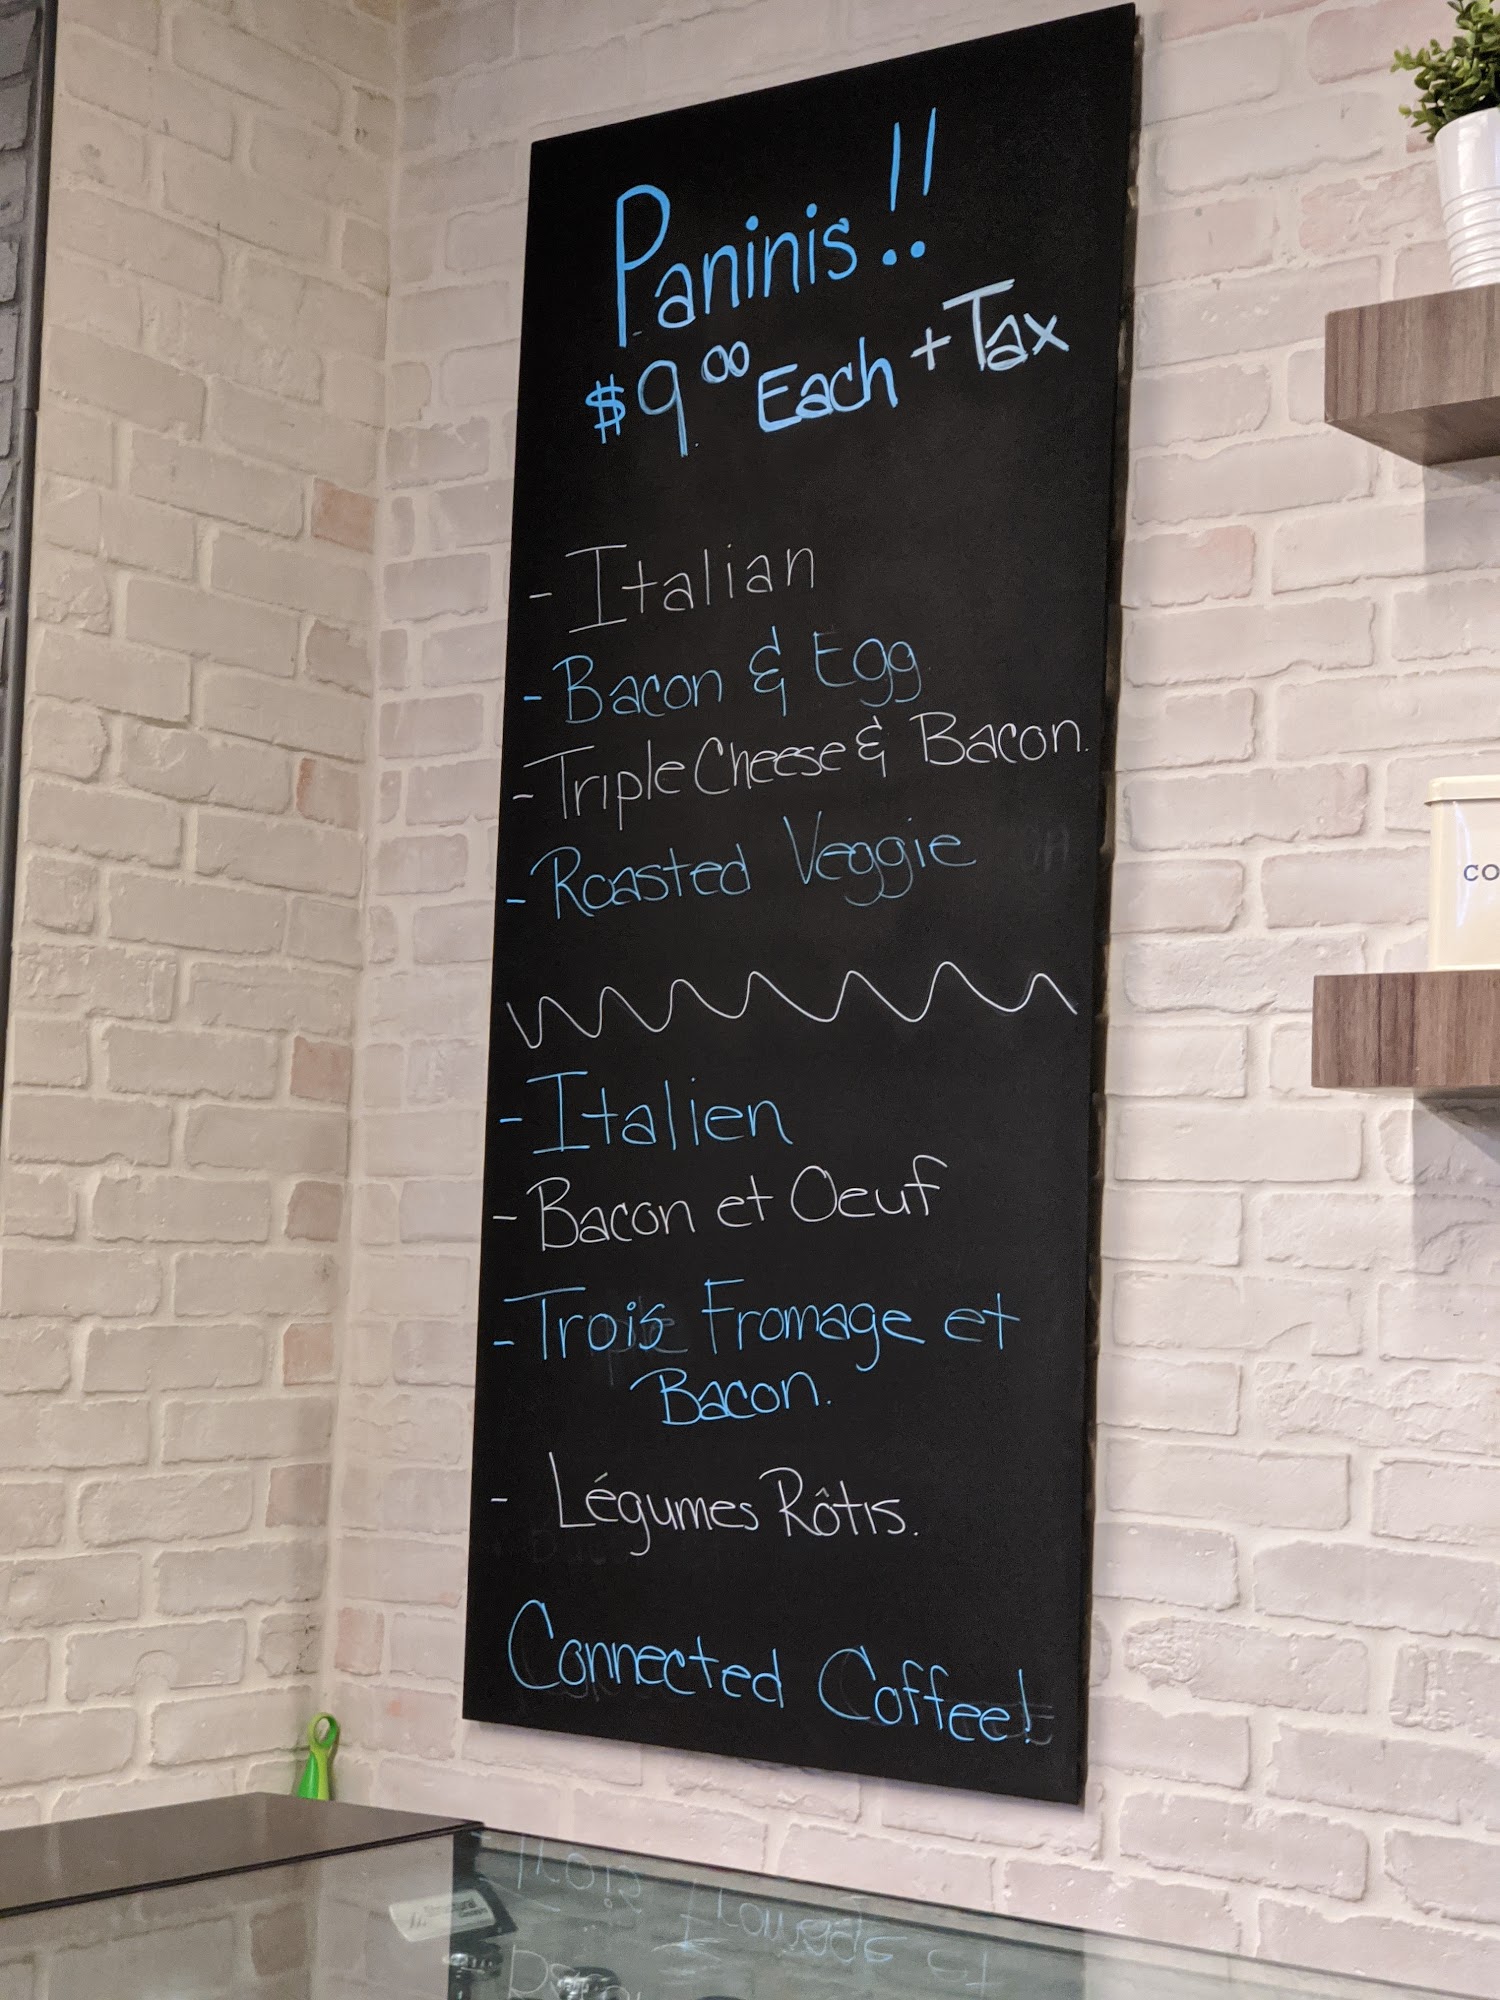 Paninis!!
$9.00 Each + Tax
- Italian
- Bacon & Egg
- Triple Cheese & Bacon.
- Roasted Veggie
- Italien
- Bacon et Oeuf
- Trois Fromage et
Bacon.
- Légumes Rôtis.
Connected Coffee!
CO